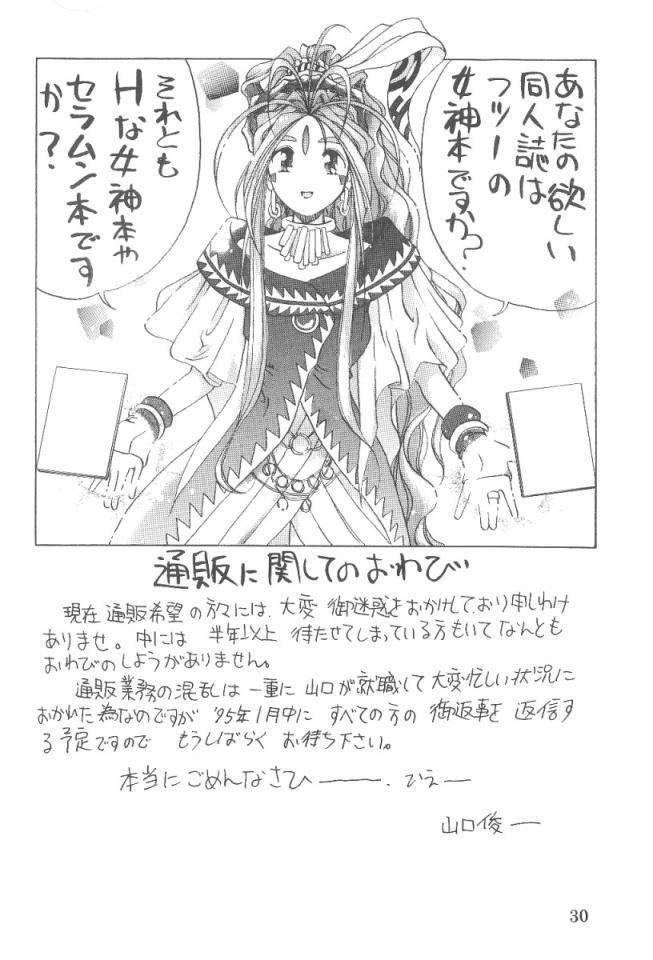 あなたの欲しい
同人誌は
フツーの
女神本ですか?
それとも
Hな女神本や
セラムン本です
か?
通販に関してのおわび
現在通販希望の方々には、大変御迷惑をおかけしており申しわけ
ありませ。中には半年以上待たせてしまっている方もいてなんとも
おわびのしようがありません。
通販業務の混乱は一重に山口が就職して大変忙しい状況に
おかれた為なのですが'95年1月中にすべての方の御返事を返信す
る予定ですのでもうしばらくお待ち下さい。
本当にごめんなさひ――――.ひえ―
山口俊一
30